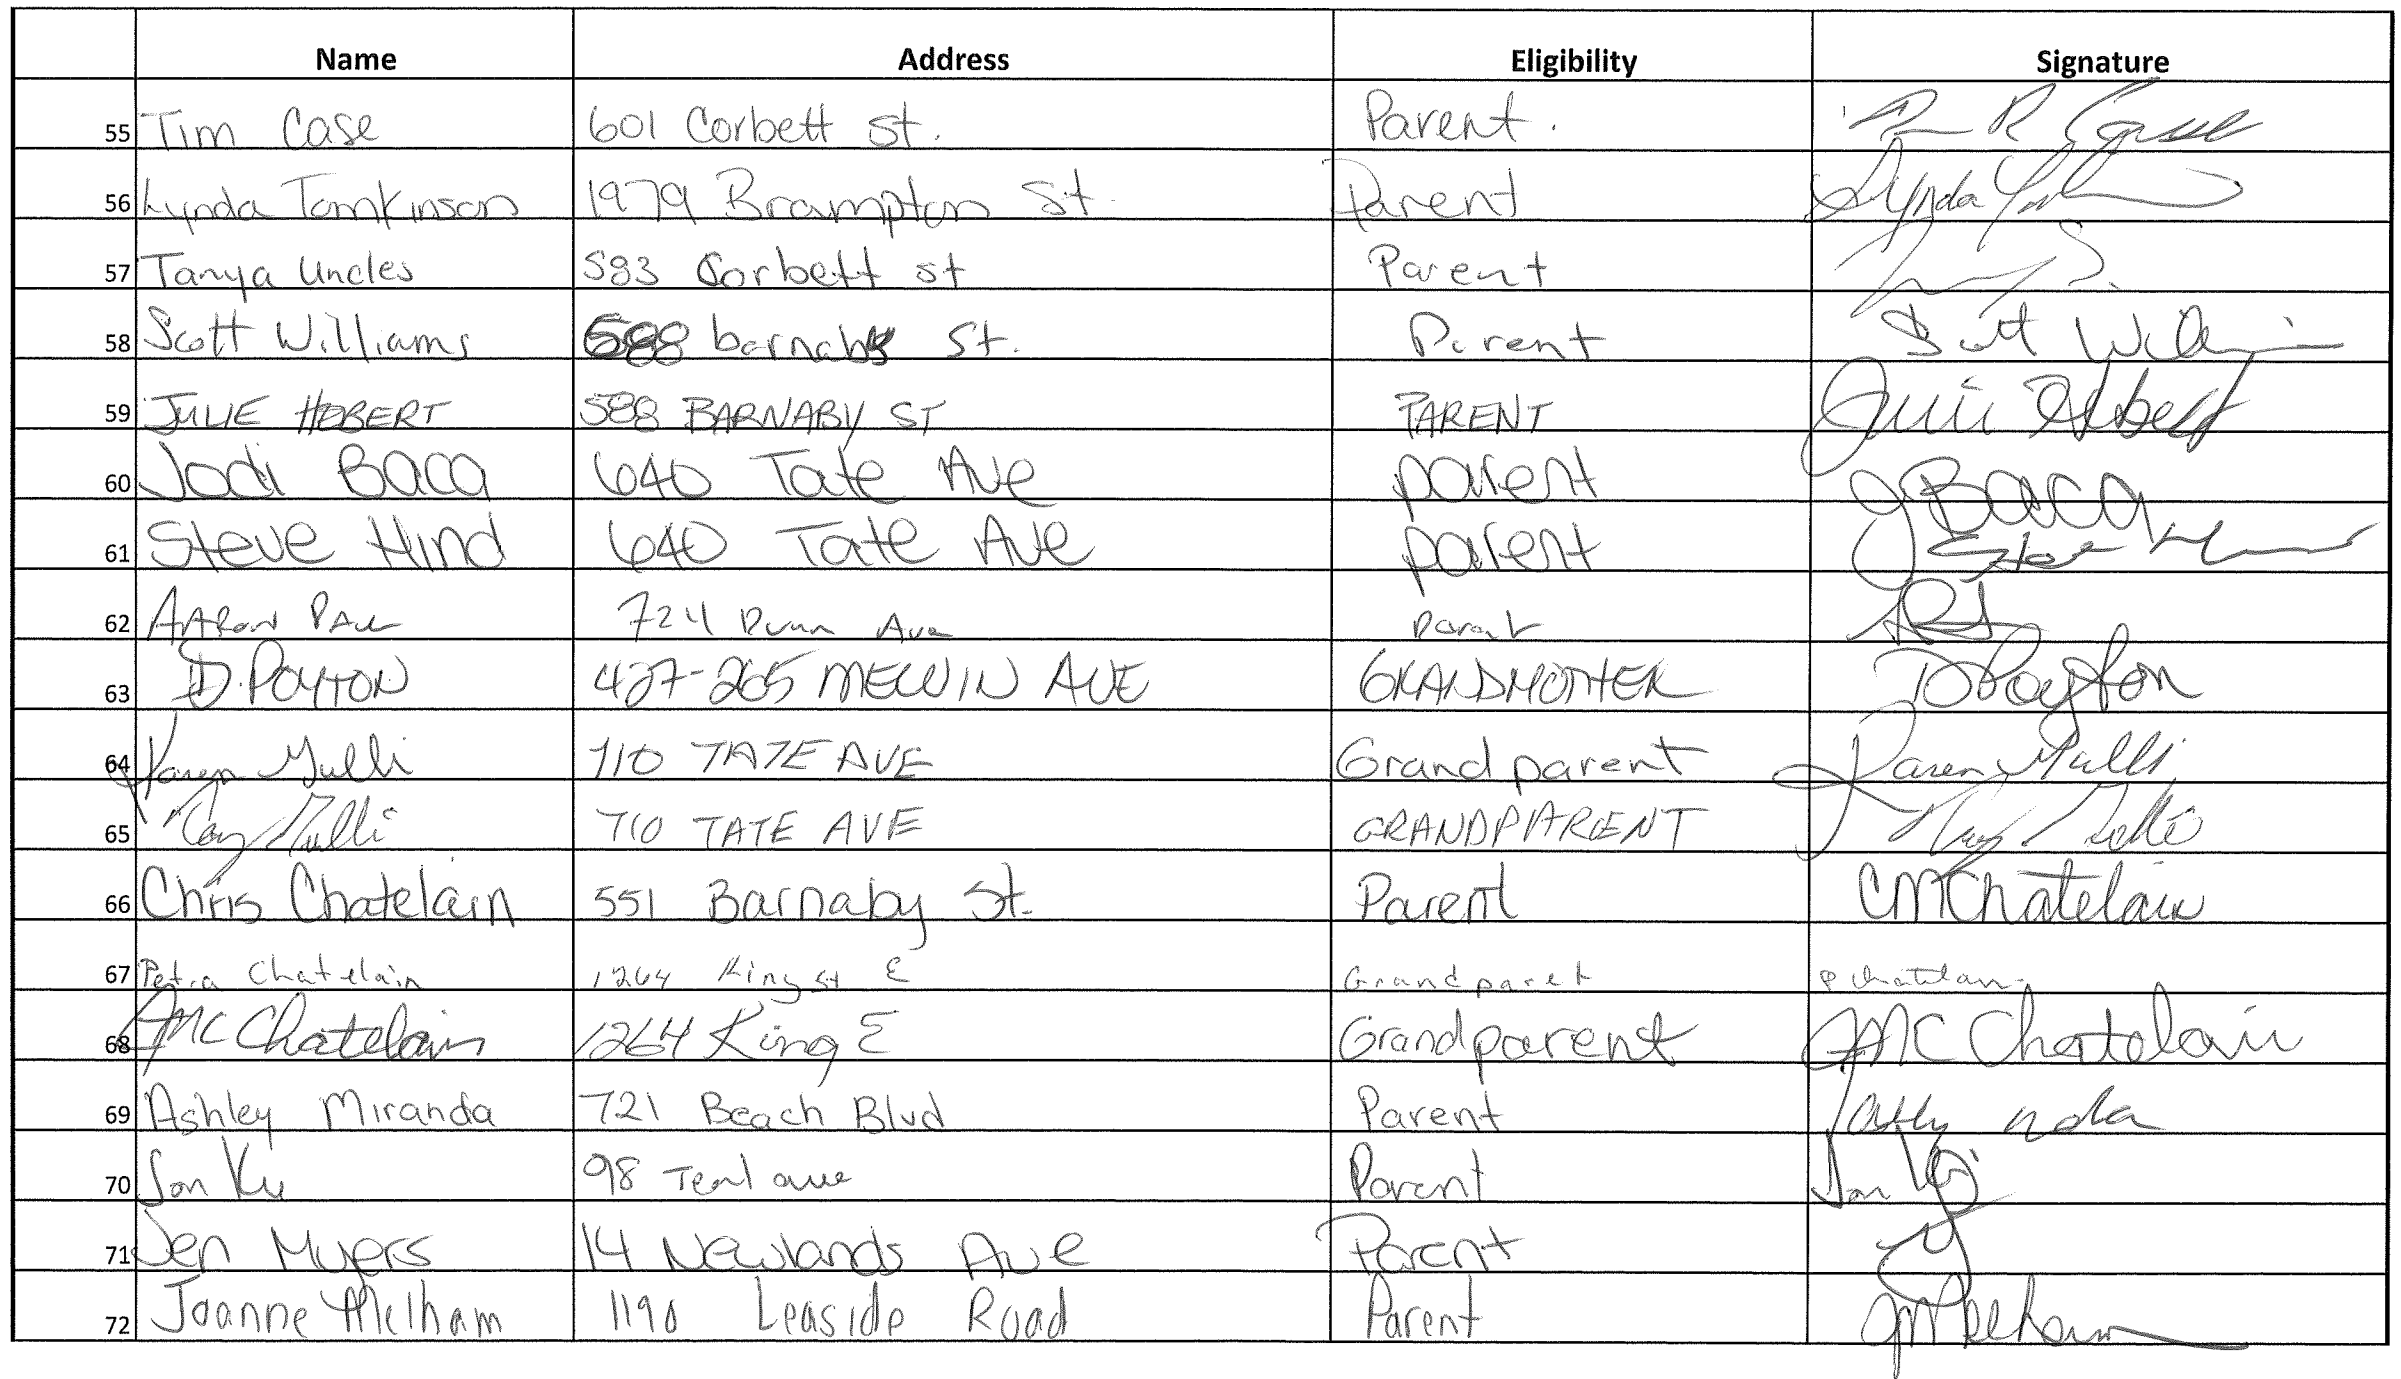 Name Address Eligibility Signature
55 Tim Case 601 Corbett St. Parent.
56 Lynda Tomkinson 1979 Brampton St. Parent Lynda
57 Tanya Uncles 583 Corbett st Parent
58 Scott Williams 588 barnaby St. Parent Scott
59 JULIE HEBERT 588 BARNABY ST PARENT Julie Hebert
60 Jodi Baca 640 Tate Ave parent J Baca
61 Steve Hind 640 Tate Ave parent
62 AARON PAUL 724 Dunn Ave Parent
63 D. POYTON 427-265 MELVIN AVE GRANDMOTHER D Poyton
64 Karen Mulli 710 TATE AVE Grandparent Karen Mulli
65 Mulli 710 TATE AVE GRANDPARENT
66 Chris Chatelain 551 Barnaby St. Parent CMChatelain
67 Petra Chatelain 1264 King st E Grandparet P Chatelain
68 MC Chatelain 1264 King E Grandparent MC Chatelain
69 Ashley Miranda 721 Beach Blvd Parent
70 Jon 98 Teal ave Parent Jon
71 Jen Myers 14 Newlands Ave Parent
72 Joanne Melham 1190 Leaside Road Parent JMelham